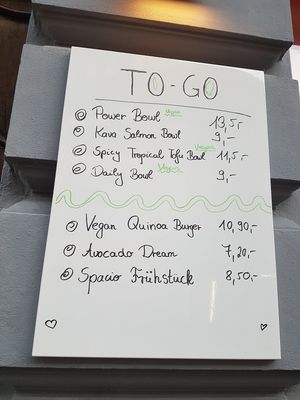 TO-GO
Power Bowl Vegan 13,5,-
Kava Salmon Bowl 9,-
Spicy Tropical Tofu Bowl Vegan 11,5,-
Daily Bowl Vegan 9,-
Vegan Quinoa Burger 10,90,-
Avocado Dream 7,20,-
Spacio Frühstück 8,50,-